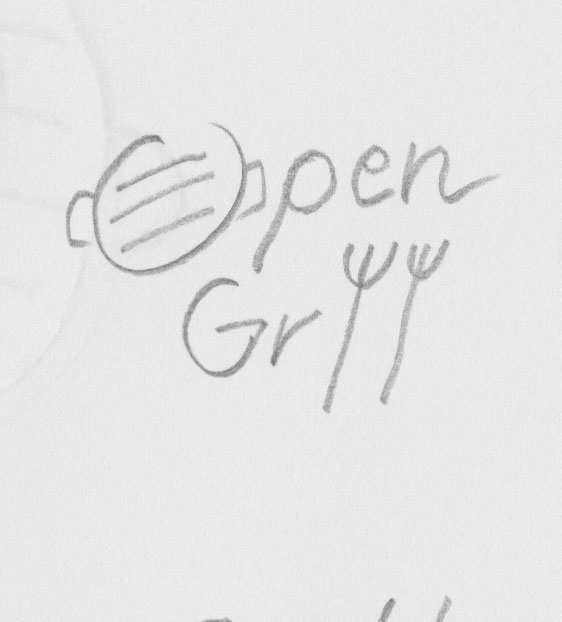 Open
Grll